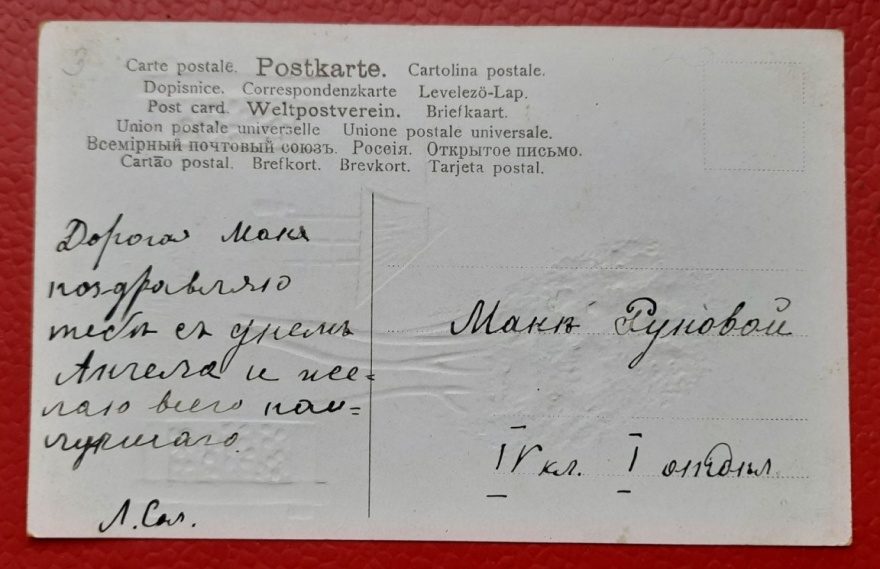 3
Carte postale. Postkarte. Cartolina postale.
Dopisnice. Correspondenzkarte Levelező-Lap.
Post card. Weltpostverein. Briefkaart.
Union postale universelle Unione postale universale.
Всемірный почтовый союзъ. Россія. Открытое письмо.
Cartão postal. Brefkort. Brevkort. Tarjeta postal.
Дорогая Маня
поздравляю
тебя съ днемъ
Ангела и же=
лаю всего наи=
лучшаго.
Л. Сол.
Манѣ Руновой
IV кл. I отдѣл.